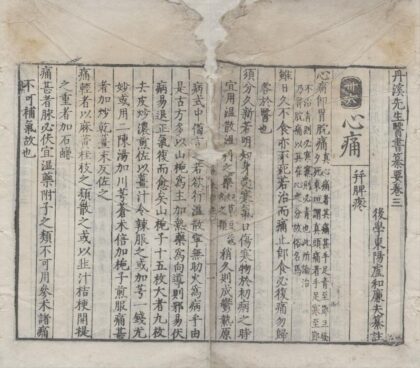 丹溪先生醫書纂要卷三
後學東陽盧和廉夫纂註
卅六
心痛 并脾疼
心痛即胃脘痛 真心痛者其痛甚手足青至節旦發
雖日久不食亦不死若治而痛止即食必復痛勿歸
咎於醫也
須分久新若明知身受寒氣口傷寒物於初病之時
宜用溫散 稍久則成鬱熱原
病式中備言 若欲行溫散寧無助火為病乎由
是古方多以山梔為主加熱藥為向導則邪易伏
病易退正氣復而愈矣山梔十五枚大者九枚
去皮炒濃煎佐以薑汁令辣服之或加芎一錢尤
妙或用二陳湯加川芎蒼朮倍加梔子煎服痛甚
者加炒乾薑末反佐之
痛輕者以麻黃桂枝之類散之或以韭汁桔梗開提
之重者加石鹼
痛甚者脈必伏宜溫藥附子之類不可用參朮諸痛
不可補氣故也